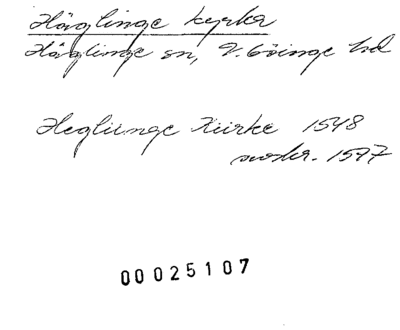 Häglinge kyrka
Häglinge sn, V. Göinge hd
Heglinge Kiirke 1548
1597
00025107